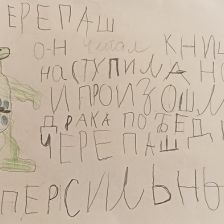 ЧЕРЕПАШ
О-Н читал КНИШ
НАСТУПИЛА НО
И ПРОИЗОШЛ
ДРАКА ПОБЕДИ
ЧЕРЕПАШ Д
ПЕРСИЛЬНЫ